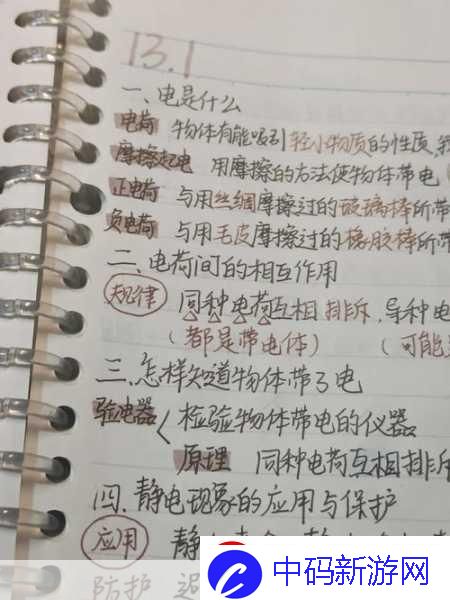 13.1
一、电是什么
电荷 物体有能吸引轻小物质的性质,
摩擦起电 用摩擦的方法使物体带电
正电荷 与用丝绸摩擦过的玻璃棒所带
负电荷 与用毛皮摩擦过的橡胶棒所带
二、电荷间的相互作用
规律 同种电荷互相排斥,异种电
(都是带电体) (可能
三、怎样知道物体带了电
验电器 检验物体带电的仪器
原理 同种电荷互相排斥
四、静电现象的应用与保护
应用 静
防护
中码新游网